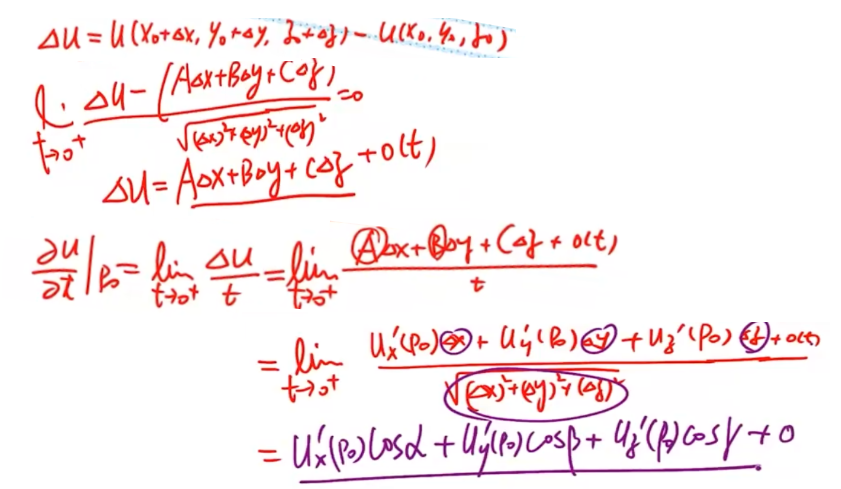 Δu = u(x₀+Δx, y₀+Δy, z₀+Δz) − u(x₀, y₀, z₀)
lim_{t→0⁺} (Δu − (AΔx+BΔy+CΔz)) / √((Δx)²+(Δy)²+(Δz)²) = 0
Δu = AΔx+BΔy+CΔz + o(t)
∂u/∂t |P₀ = lim_{t→0⁺} Δu/t = lim_{t→0⁺} (AΔx+BΔy+CΔz+o(t)) / t
= lim_{t→0⁺} (u'x(P₀)Δx + u'y(P₀)Δy + uz'(P₀)Δz + o(t)) / √((Δx)²+(Δy)²+(Δz)²)
= u'x(P₀)cosα + u'y(P₀)cosβ + uz'(P₀)cosγ + 0